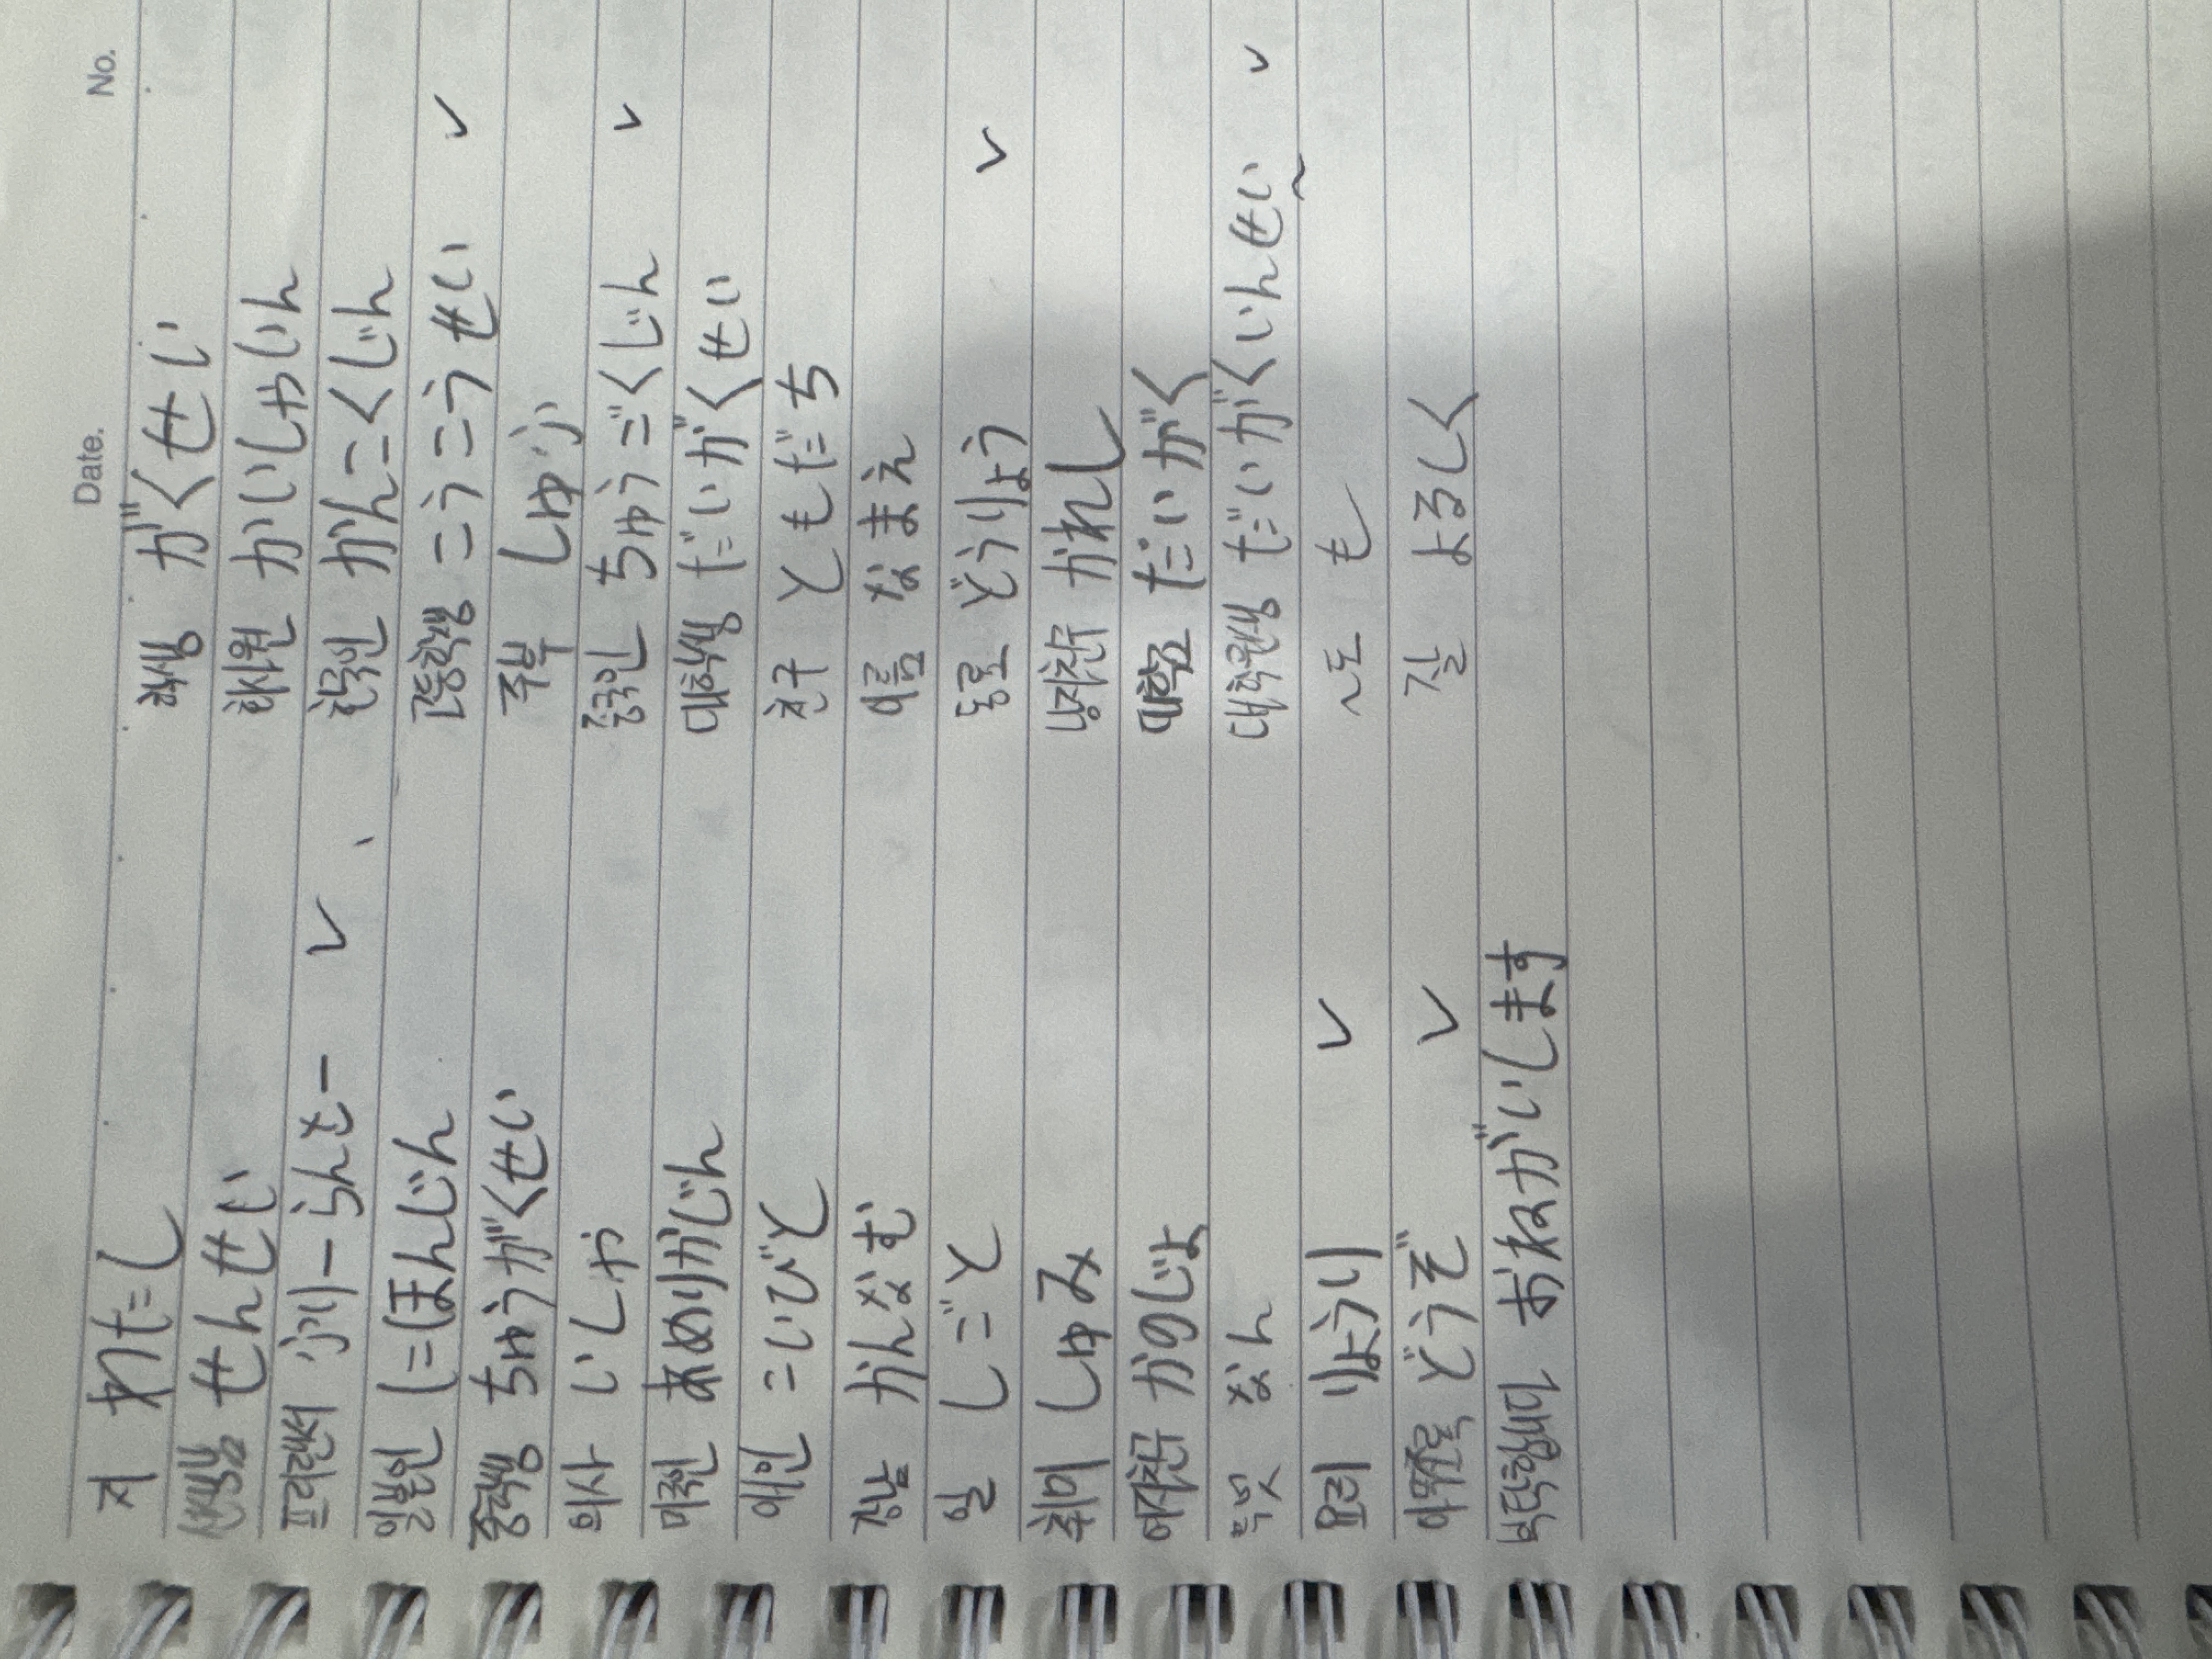 Date. No.
저 わたし 학생 がくせい
선생님 せんせい 회사원 かいしゃいん
프리랜서 ふりーらんさー ✓ 한국인 かんこくじん
일본인 にほんじん 고등학생 こうこうせい ✓
중학생 ちゅうがくせい 주부 しゅふ
의사 いしゃ 중국인 ちゅうごくじん ✓
미국인 あめりかじん 대학생 だいがくせい
애인 こいびと 친구 ともだち
강남 かんなむ 이름 なまえ
일 しごと 동료 どうりょう ✓
취미 しゅみ 남자친구 かれし
여자친구 かのじょ 대학교 だいがく
무엇 なん 대학원생 だいがくいんせい ✓
요리 りょうり ✓ ~도 も
아무쪼록 どうぞ ✓ 잘 よろしく
부탁합니다 おねがいします